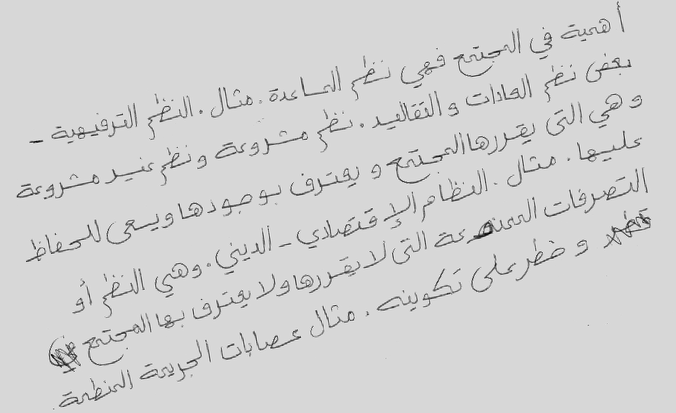 أهمية في المجتمع فهي نظم المساعدة . مثال . النظم الترفيهية -
بعض نظم العادات والتقاليد . نظم مشروعة ونظم غير مشروعة
وهي التي يقررها المجتمع ويعترف بوجودها ويسعى للحفاظ
عليها . مثال . النظام الإقتصادي - الديني . وهي النظم أو
التصرفات الممنوعة التي لا يقررها ولا يعترف بها المجتمع
وخطر على تكوينه . مثال عصابات الجريمة المنظمة .